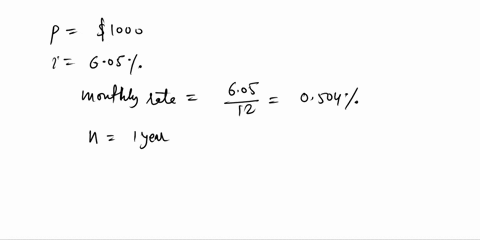 P = $1000
r = 6.05%.
monthly rate = 6.05/12 = 0.504%.
n = 1 year